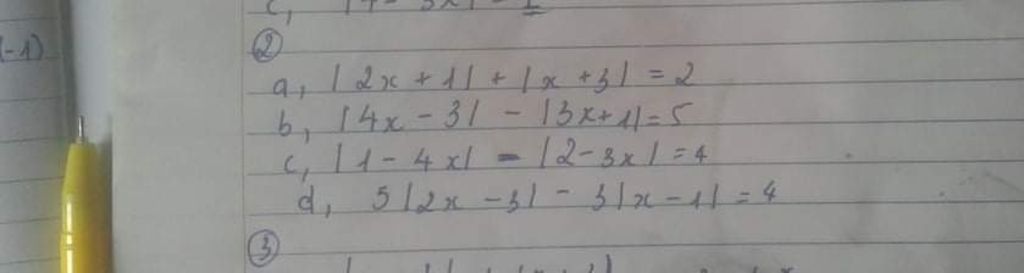 (-1)
②
a, |2x + 1| + |x + 3| = 2
b, |4x - 3| - |3x+1| = 5
c, |1 - 4x| - |2-3x| = 4
d, 5|2x - 3| - 3|x - 1| = 4
③